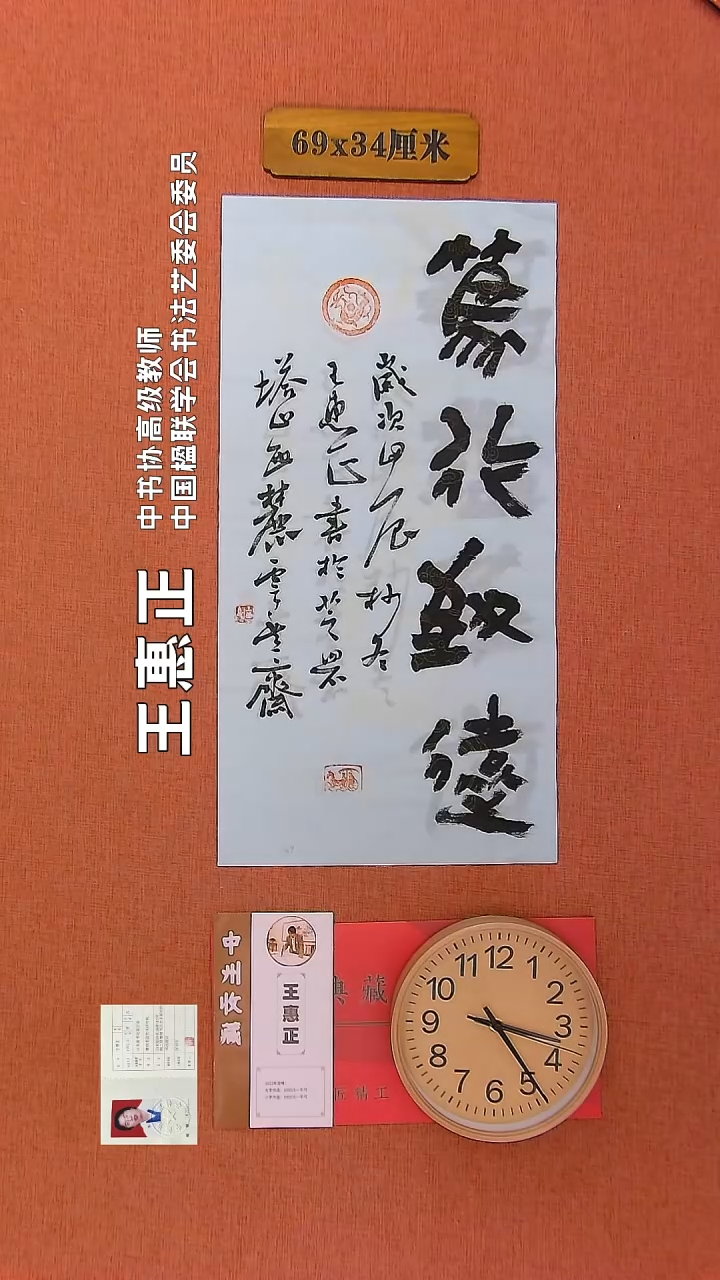 69x34厘米
篤行致遠
歲次甲辰杪冬
王惠正書於芝罘
塔山西麓雲齋
中书协高级教师
中国楹联学会书法艺委会委员
王惠正
王惠正
典藏
匠精工
12 1 2 3 4 5 6 7 8 9 10 11